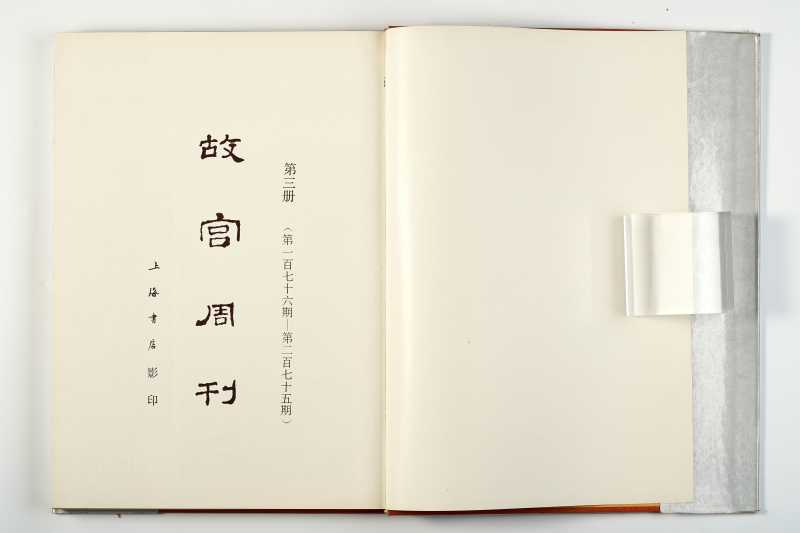 第三册 （第一百七十六期—第二百七十五期）
故宫周刊
上海书店影印